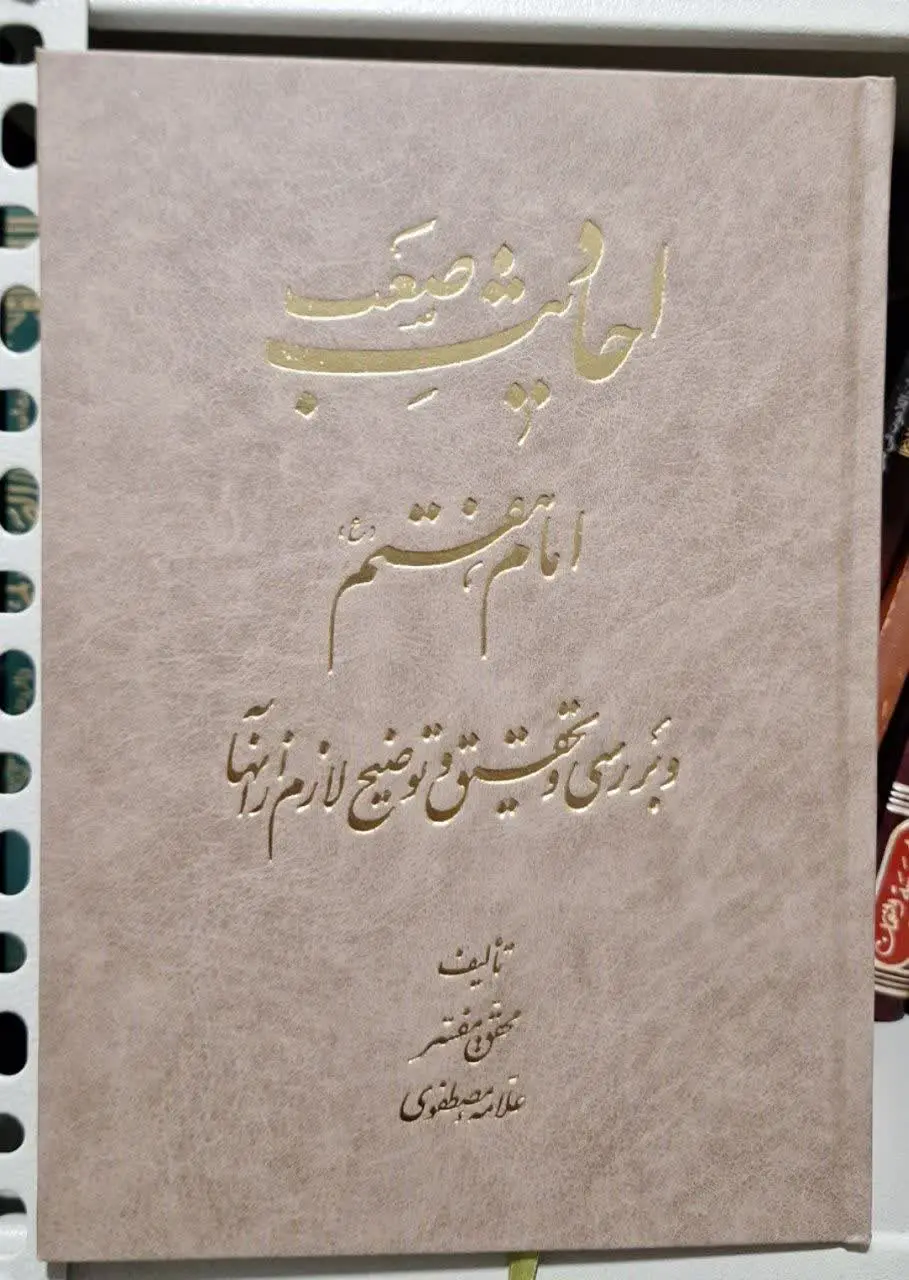 احادیث صعب
امام هفتم (ع)
و بررسی و تحقیق و توضیح لازم از آنها
تألیف
محقق مفسر
علامه مصطفوی